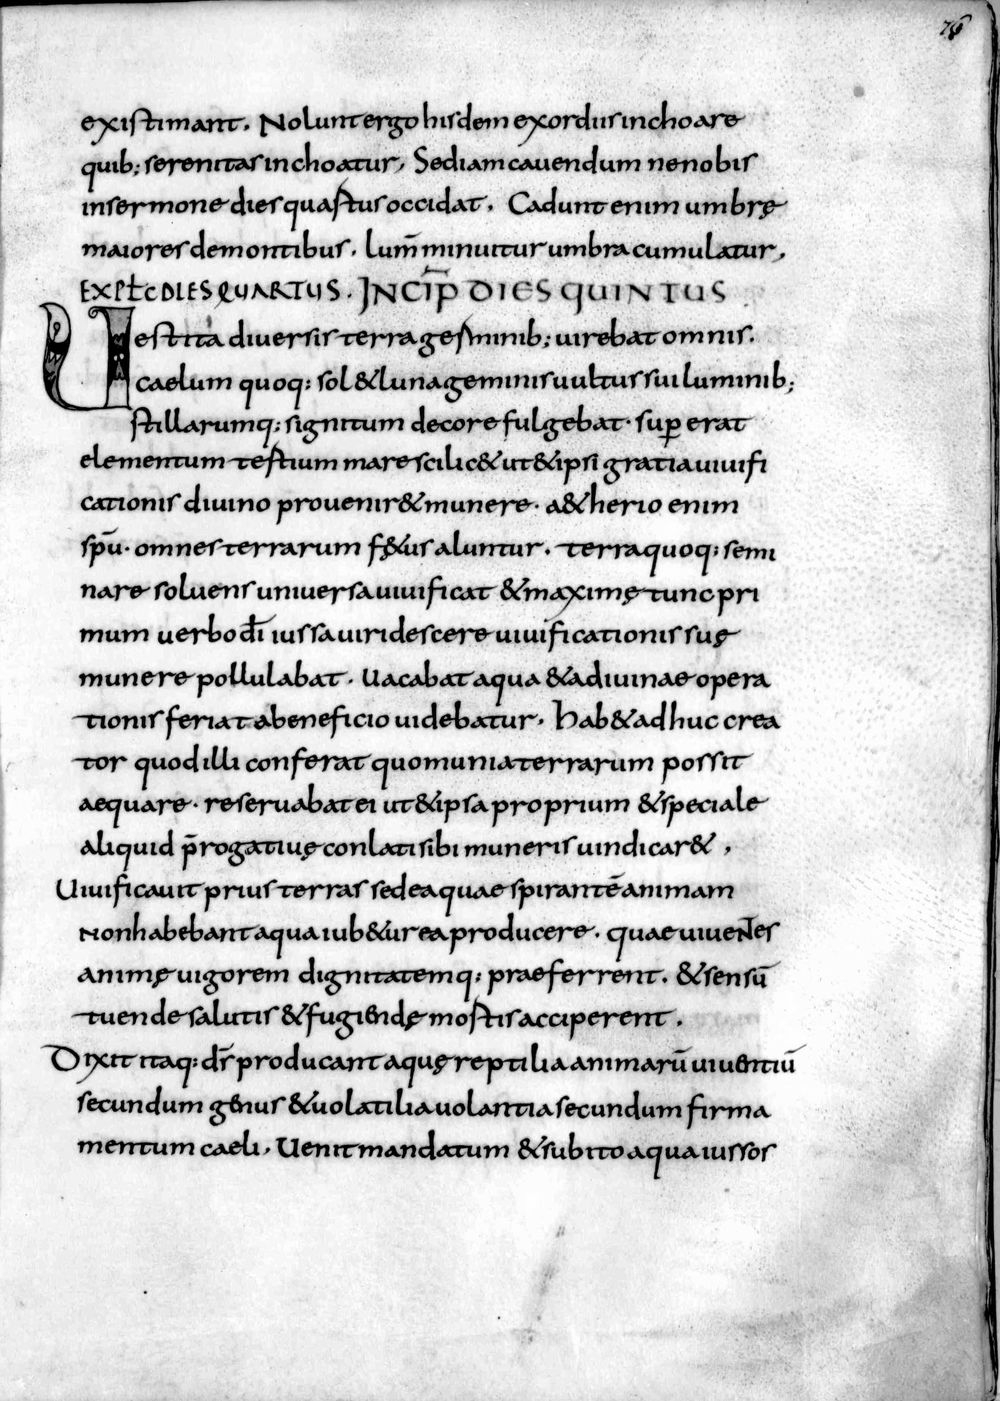 76
existimant. Nolunt ergo hisdem exordiis inchoare
quib; serenitas inchoatur, Sed iam cauendum ne nobis
in sermone dies quastus occidat. Cadunt enim umbrę
maiores de montibus. lum̅ minuitur umbra cumulatur,
EXPL̅C DIES QUARTUS. INCIP̅ DIES QUINTUS
Uestita diuersis terra gesminib; uirebat omnis.
caelum quoq; sol & luna geminis uultus sui luminib;
stillarumq; signitum decore fulgebat. suꝑerat
elementum testium mare scilic& ut & ipsi gratia uiuifi
cationis diuino prouenir& munere. a&herio enim
sp̅u. omnes terrarum f&us aluntur. terra quoq; semi
nare soluens uniuersa uiuificat & maximę tunc pri
mum uerbo d̅i iussa uiridescere uiuificationis suę
munere pollulabat. Uacabat aqua & a diuinae opera
tionis feriat a beneficio uidebatur. hab& adhuc crea
tor quod illi conferat quo munia terrarum possit
aequare. reseruabat ei ut & ipsa proprium & speciale
aliquid p̅rogatiuę conlati sibi muneris uindicar&,
Uiuificauit prius terras sed ea quae spirante̅ animam
non habebant aqua iub&ur ea producere. quae uiuentes
animę uigorem dignitatemq; praeferrent. & sensu̅
tuende salutis & fugiendę mostis acciperent.
Dixit itaq; d̅s producant aquę reptilia animaru̅ uiuentiu̅
secundum genus & uolatilia uolantia secundum firma
mentum caeli. Uenit mandatum & subito aqua iussos